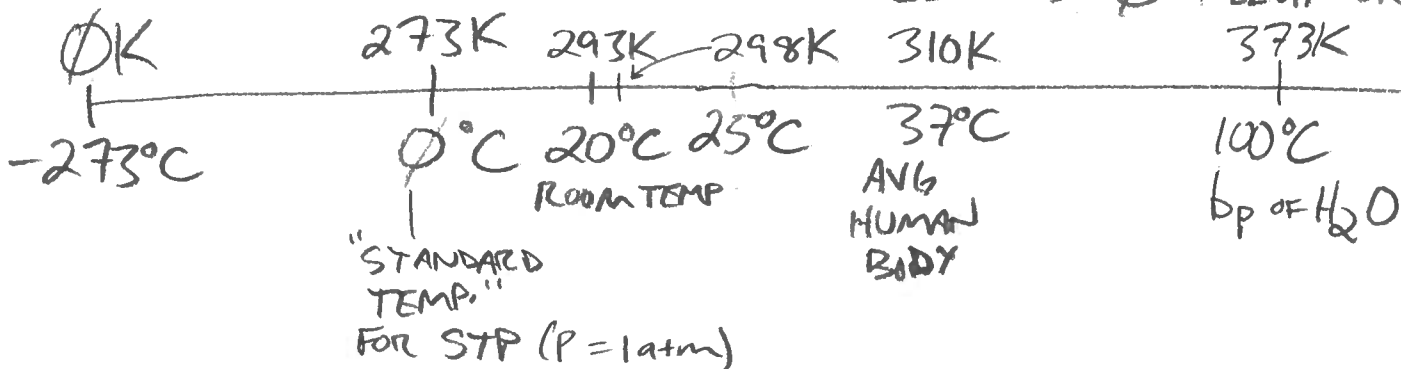 ØK 273K 293K 298K 310K 373K
-273°C Ø°C 20°C 25°C 37°C 100°C
ROOM TEMP AVG HUMAN BODY bp OF H₂O
"STANDARD
TEMP."
FOR STP (P = 1atm)